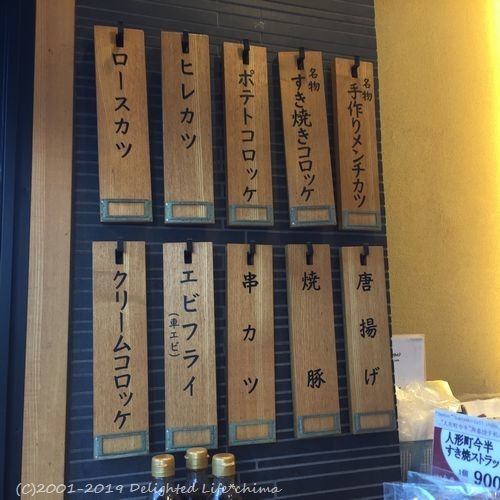 名物
手作りメンチカツ
名物
すき焼きコロッケ
ポテトコロッケ
ヒレカツ
ロースカツ
唐揚げ
焼豚
串カツ
エビフライ
(車エビ)
クリームコロッケ
人形町今半
すき焼ストラッ
1個 900
(C)2001-2019 Delighted Life*chima